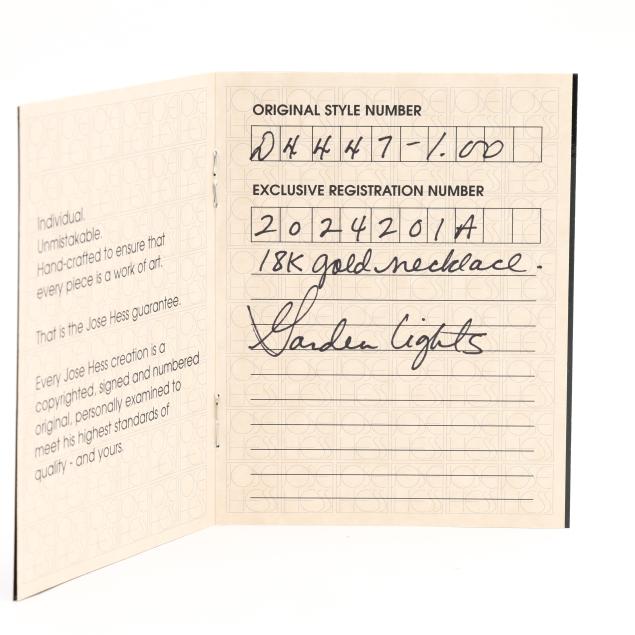 Individual.
Unmistakable.
Hand-crafted to ensure that
every piece is a work of art.
That is the Jose Hess guarantee.
Every Jose Hess creation is a
copyrighted, signed and numbered
original, personally examined to
meet his highest standards of
quality - and yours.
ORIGINAL STYLE NUMBER
D4447-1.00
EXCLUSIVE REGISTRATION NUMBER
2024201A
18K gold necklace.
Garden lights